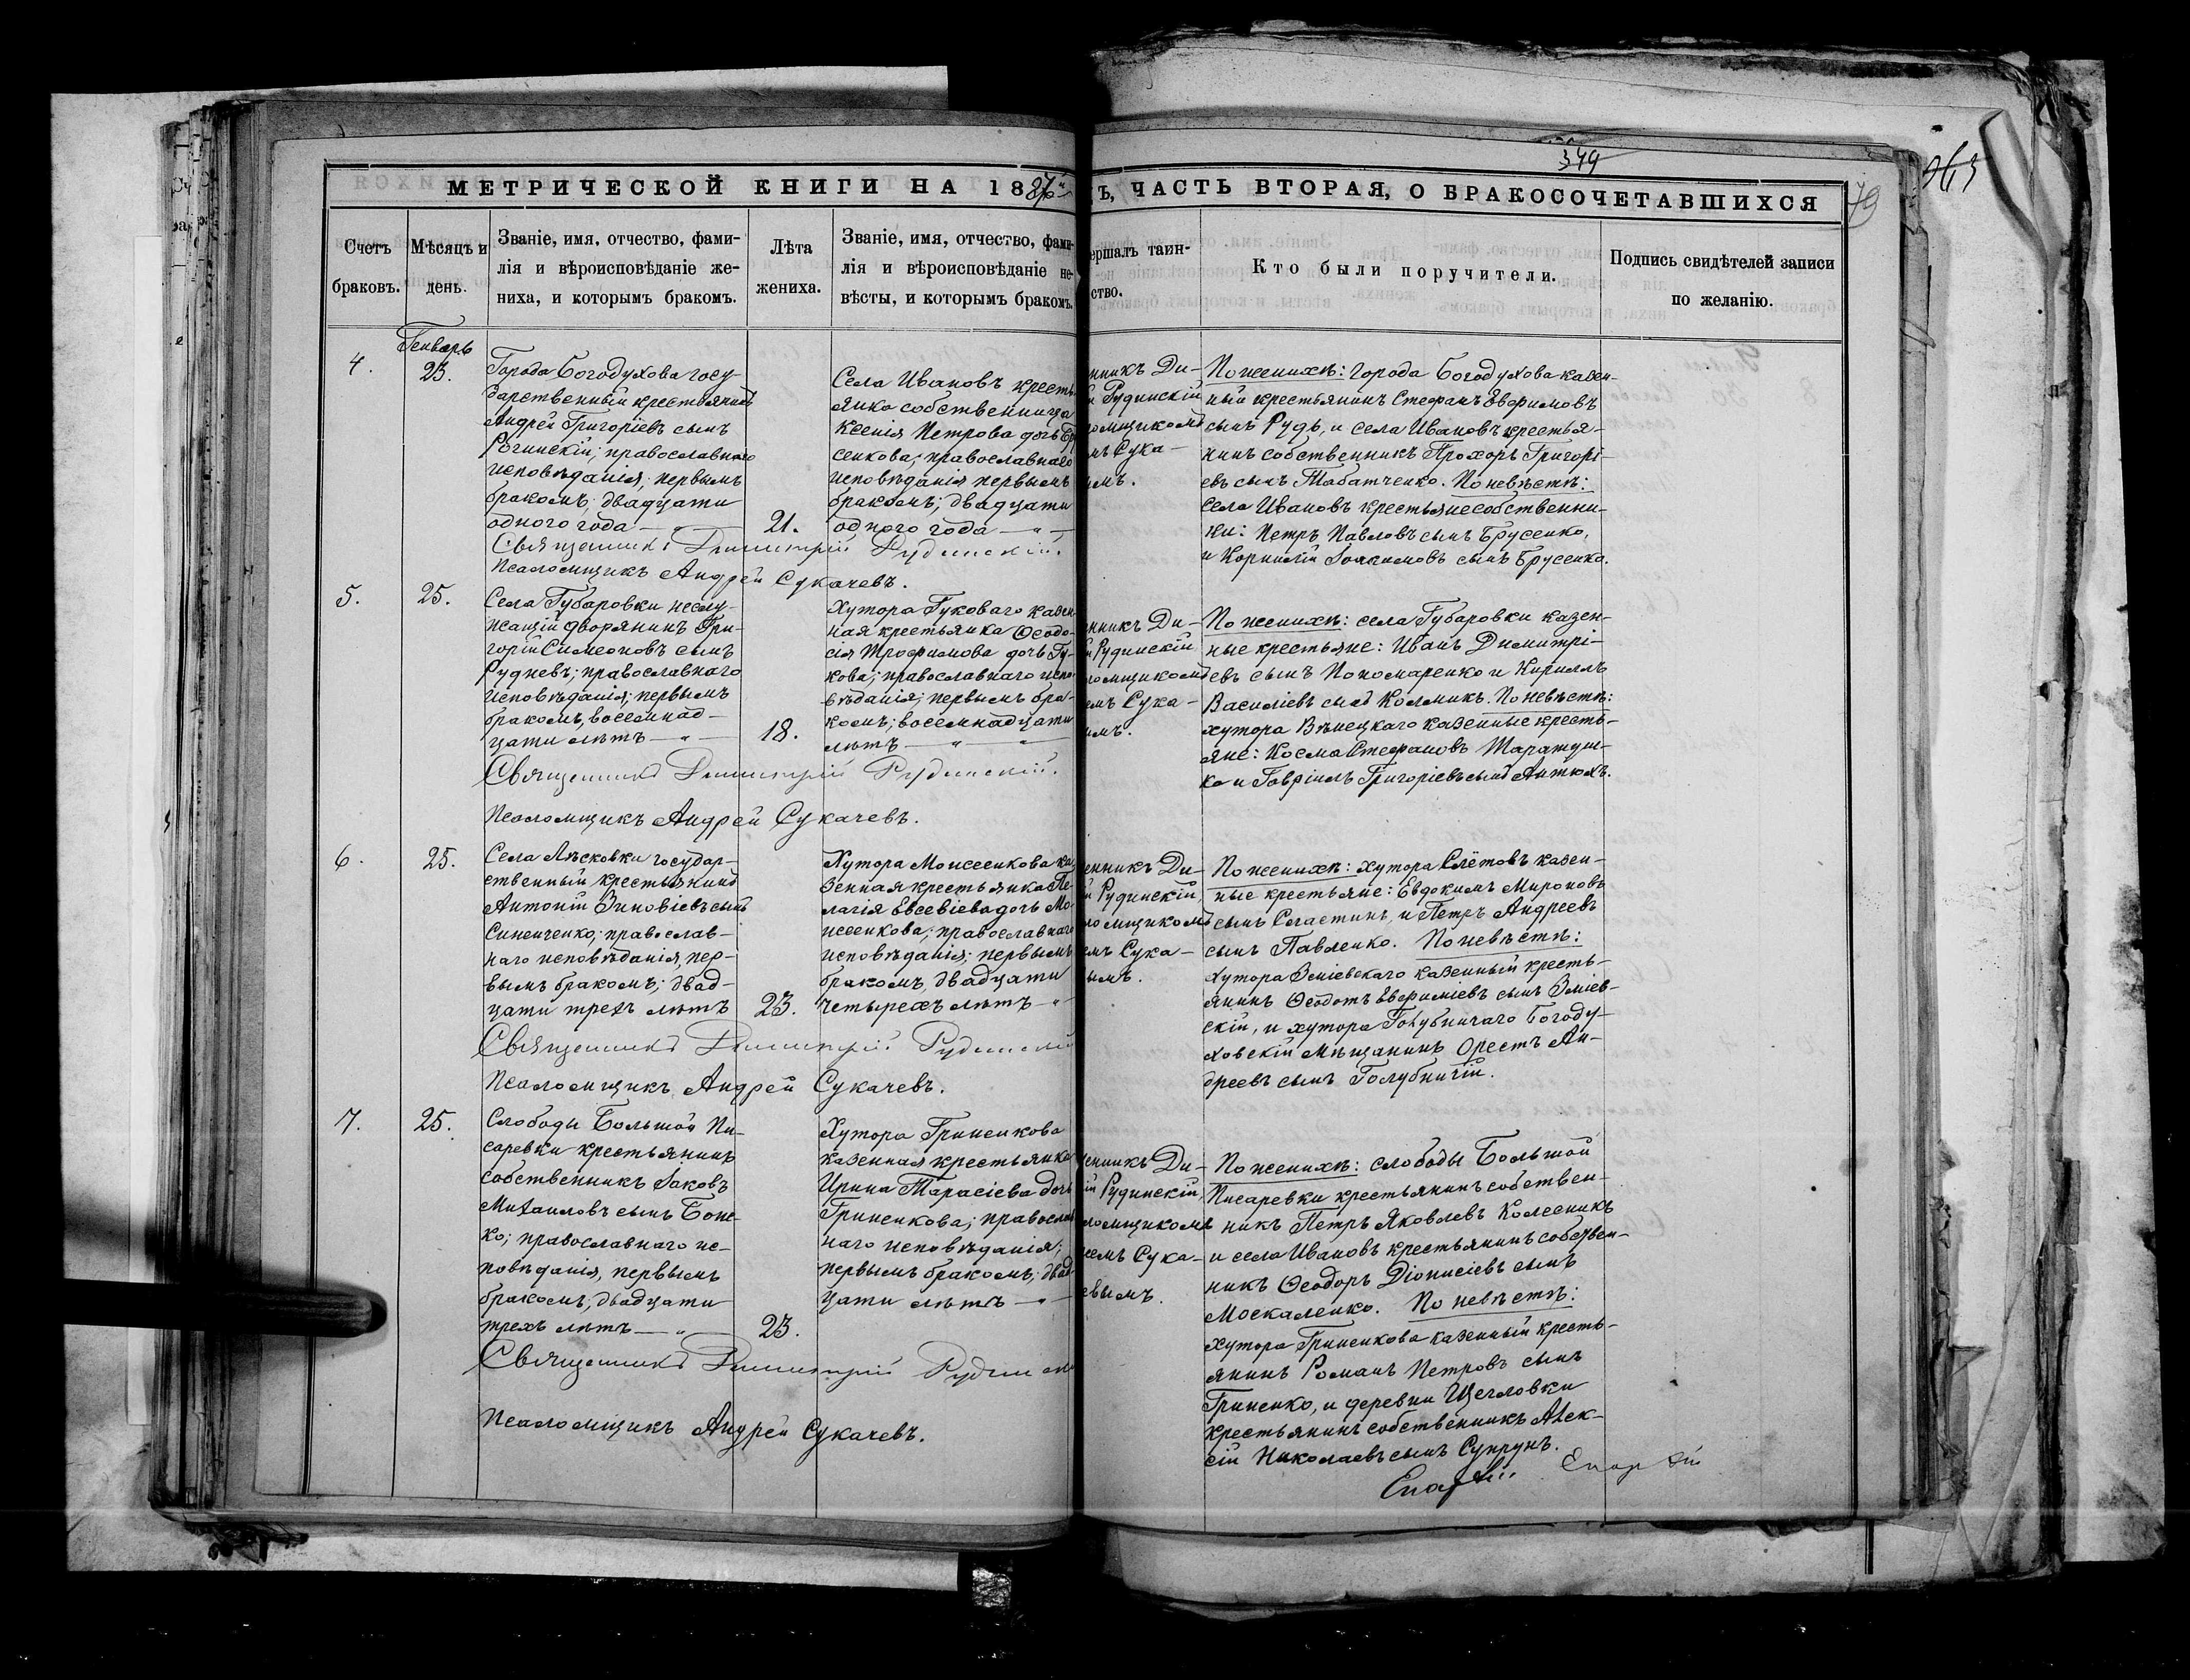 349
363
79
МЕТРИЧЕСКОЙ КНИГИ НА 1887
Ъ, ЧАСТЬ ВТОРАЯ, О БРАКОСОЧЕТАВШИХСЯ
Счетъ
браковъ.
Мѣсяцъ и
день.
Званіе, имя, отчество, фами-
лія и вѣроисповѣданіе же-
ниха, и которымъ бракомъ.
Лѣта
жениха.
Званіе, имя, отчество, фами-
лія и вѣроисповѣданіе не-
вѣсты, и которымъ бракомъ.
ершалъ таин-
ство.
Кто были поручители.
Подпись свидѣтелей записи
по желанію.
Генварь
4.
23.
Города Богодухова госу-
дарственный крестьянинъ
Андрей Григоріевъ сынъ
Рогинскій; православнаго
исповѣданія; первымъ
бракомъ; двадцати
одного года — „ —
21.
Села Ивановъ кресть
янка собственница
Ксенія Петрова дочь Бр
сенкова; православнаго
исповѣданія первымъ
бракомъ; двадцати
одного года — „ —
Священникъ Димитрій Рудинскій.
Псаломщикъ Андрей Сукачевъ.
нникъ Ди-
й Рудинскій
ломщикомъ
мъ Сука-
ымъ.
По женихѣ: города Богодухова казен-
ный крестьянинъ Стефанъ Евфимовъ
сынъ Рудь, и села Ивановъ крестья-
нинъ собственникъ Прохоръ Григорі-
евъ сынъ Табатченко. По невѣстѣ:
села Ивановъ крестьяне собственни-
ки: Петръ Павловъ сынъ Брусенко,
и Корнилій Іоакимовъ сынъ Брусенко.
5.
25.
Села Губаровки неслу-
жащій дворянинъ Гри-
горій Симеоновъ сынъ
Рудневъ; православнаго
исповѣданія; первымъ
бракомъ, восемнад-
цати лѣтъ — „ —
18.
Хутора Гуковаго казен
ная крестьянка Ѳеодо-
сія Трофимова дочь Гу-
кова; православнаго испо-
вѣданія; первымъ бра-
комъ; восемнадцати
лѣтъ — „ — „
Священникъ Димитрій Рудинскій.
Псаломщикъ Андрей Сукачевъ.
нникъ Ди-
й Рудинскій
ломщикомъ
емъ Сука-
ымъ.
По женихѣ: села Губаровки казен-
ные крестьяне: Иванъ Димитрі-
евъ сынъ Пономаренко и Кириллъ
Василіевъ сынъ Колмикъ. По невѣстѣ:
хутора Вѣнецкаго казенные кресть-
яне: Косма Стефановъ Таратуш-
ко и Гавріилъ Григоріевъ сынъ Антюхъ.
6.
25.
Села Лѣсковки государ-
ственный крестьянинъ
Антоній Зиновіевъ сынъ
Синенченко; православ-
наго исповѣданія, пер-
вымъ бракомъ; двад-
цати трехъ лѣтъ
23.
Хутора Моисеенкова ка
зенная крестьянка Пе-
лагія Евсевіева дочь Мо-
исеенкова; православнаго
исповѣданія; первымъ
бракомъ, двадцати
четырехъ лѣтъ — „
Священникъ Димитрій Рудинскій
Псаломщикъ Андрей Сукачевъ.
енникъ Ди-
й Рудинскій,
ломщикомъ
емъ Сука-
ымъ.
По женихѣ: хутора Слётовъ казен-
ные крестьяне: Евдокимъ Мироновъ
сынъ Сластинъ, и Петръ Андреевъ
сынъ Павленко. По невѣстѣ:
хутора Зміевскаго казенный кресть-
янинъ Ѳеодотъ Евфиміевъ сынъ Зміев-
скій, и хутора Голубничаго Богоду-
ховскій мѣщанинъ Орестъ Ан-
дреевъ сынъ Голубничій.
7.
25.
Слободы Большой Пи-
саревки крестьянинъ
собственникъ Іаковъ
Михаиловъ сынъ Бонс-
ко; православнаго ис-
повѣданія, первымъ
бракомъ, двадцати
трехъ лѣтъ — „ —
23.
Хутора Гриненкова
казенная крестьянка
Ирина Тарасіева дочь
Гриненкова; православ
наго исповѣданія;
первымъ бракомъ; двад-
цати лѣтъ — „ —
Священникъ Димитрій Рудинскі
Псаломщикъ Андрей Сукачевъ.
енникъ Ди-
ій Рудинскій,
ломщикомъ
еемъ Сука-
евымъ.
По женихѣ: слободы Большой
Писаревки крестьянинъ собствен-
никъ Петръ Яковлевъ Колесникъ
и села Ивановъ крестьянинъ собствен-
никъ Ѳеодоръ Діонисіевъ сынъ
Москаленко. По невѣстѣ:
хутора Гриненкова казенный кресть-
янинъ Романъ Петровъ сынъ
Гриненко, и деревни Щегловки
крестьянинъ собственникъ Алек-
сій Николаевъ сынъ Супрунъ.